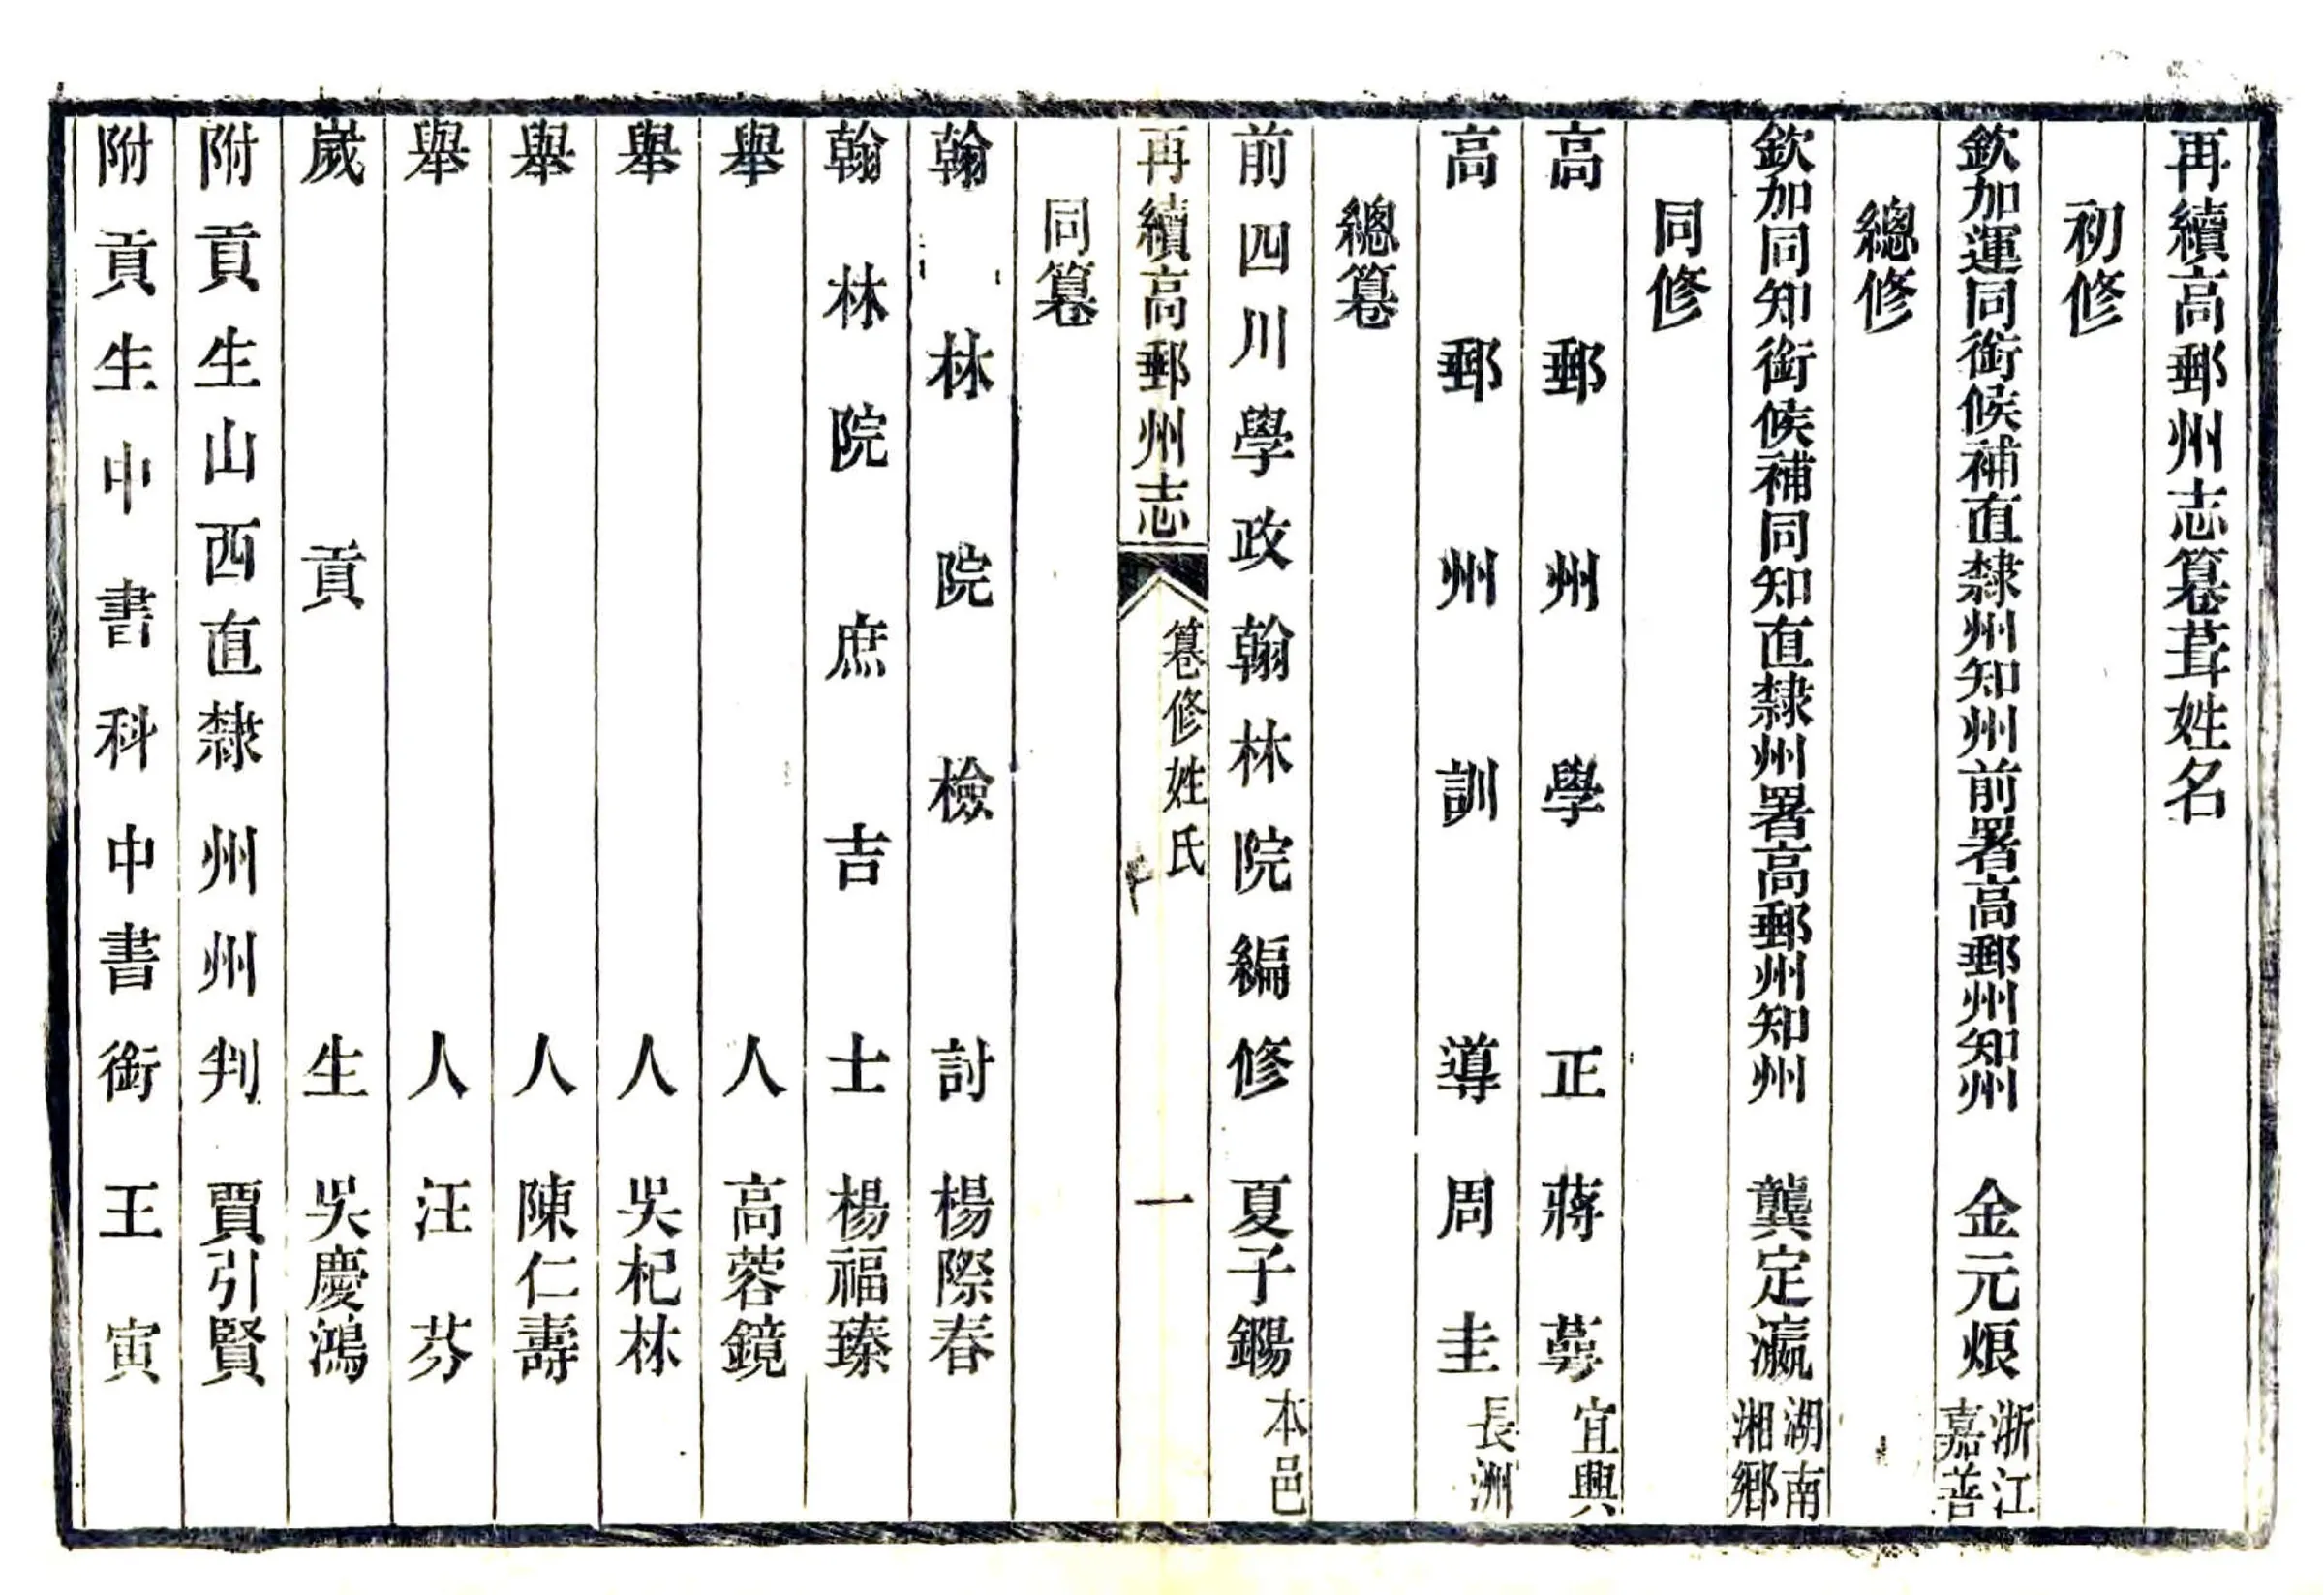 再續高郵州志篹葺姓名
初修
欽加運同銜候補直隸州知州前署高郵州知州 金元烺 浙江嘉善
總修
欽加同知銜候補同知直隸州署高郵州知州 龔定瀛 湖南湘鄉
同修
高郵州學正 蔣蕚 宜興
高郵州訓導 周圭 長洲
總篹
前四川學政翰林院編修 夏子鐊 本邑
再續高郵州志 篹修姓氏 一
同篹
翰林院檢討 楊際春
翰林院庶吉士 楊福臻
舉人 高蓉鏡
舉人 吳杞林
舉人 陳仁壽
舉人 汪芬
嵗貢生 吳慶鴻
附貢生山西直隸州州判 賈引賢
附貢生中書科中書銜 王寅